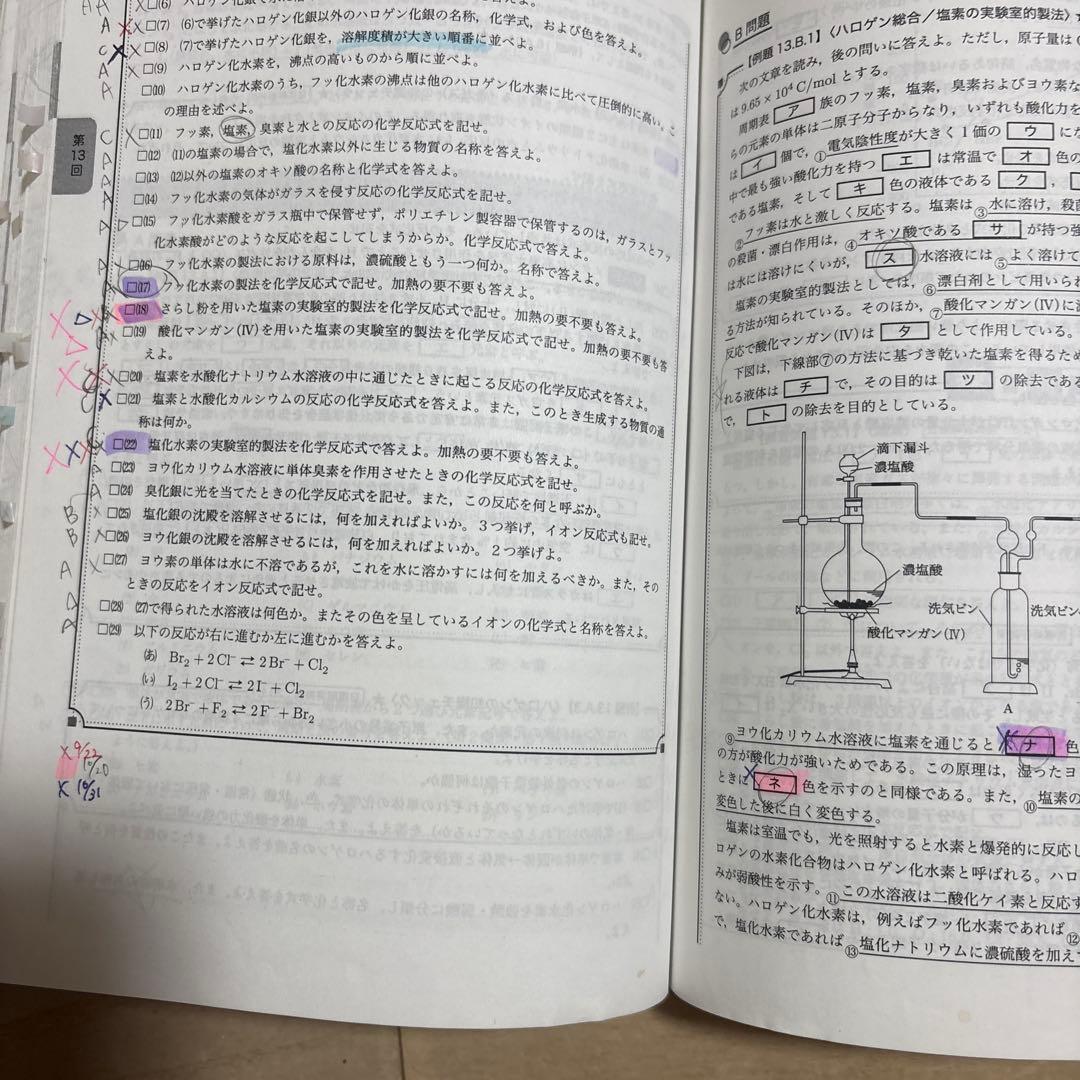 (7) (6)で挙げたハロゲン化銀以外のハロゲン化銀の名称，化学式，および色を答えよ。
(8) (7)で挙げたハロゲン化銀を，溶解度積が大きい順番に並べよ。
(9) ハロゲン化水素を，沸点の高いものから順に並べよ。
(10) ハロゲン化水素のうち，フッ化水素の沸点は他のハロゲン化水素に比べて圧倒的に高い。こ
の理由を述べよ。
(11) フッ素，塩素，臭素と水との反応の化学反応式を記せ。
(12) (11)の塩素の場合で，塩化水素以外に生じる物質の名称を答えよ。
(13) (12)以外の塩素のオキソ酸の名称と化学式を答えよ。
(14) フッ化水素の気体がガラスを侵す反応の化学反応式を記せ。
(15) フッ化水素酸をガラス瓶中で保管せず，ポリエチレン製容器で保管するのは，ガラスとフッ
化水素酸がどのような反応を起こしてしまうからか。化学反応式で答えよ。
(16) フッ化水素の製法における原料は，濃硫酸ともう一つ何か。名称で答えよ。
(17) フッ化水素の製法を化学反応式で記せ。加熱の要不要も答えよ。
(18) さらし粉を用いた塩素の実験室的製法を化学反応式で記せ。加熱の要不要も答えよ。
(19) 酸化マンガン(IV)を用いた塩素の実験室的製法を化学反応式で記せ。加熱の要不要も答
えよ。
(20) 塩素を水酸化ナトリウム水溶液の中に通じたときに起こる反応の化学反応式を答えよ。
(21) 塩素と水酸化カルシウムの反応の化学反応式を答えよ。また，このとき生成する物質の通
称は何か。
(22) 塩化水素の実験室的製法を化学反応式で答えよ。加熱の要不要も答えよ。
(23) ヨウ化カリウム水溶液に単体臭素を作用させたときの化学反応式を記せ。
(24) 臭化銀に光を当てたときの化学反応式を記せ。また，この反応を何と呼ぶか。
(25) 塩化銀の沈殿を溶解させるには，何を加えればよいか。3つ挙げ，イオン反応式も記せ。
(26) ヨウ化銀の沈殿を溶解させるには，何を加えればよいか。2つ挙げよ。
(27) ヨウ素の単体は水に不溶であるが，これを水に溶かすには何を加えるべきか。また，その
ときの反応をイオン反応式で記せ。
(28) (27)で得られた水溶液は何色か。またその色を呈しているイオンの化学式と名称を答えよ。
(29) 以下の反応が右に進むか左に進むかを答えよ。
(あ) Br₂ + 2Cl⁻ ⇄ 2Br⁻ + Cl₂
(い) I₂ + 2Cl⁻ ⇄ 2I⁻ + Cl₂
(う) 2Br⁻ + F₂ ⇄ 2F⁻ + Br₂
第13回
× 9/22
10/20
× 10/31
B 問題
【例題 13.B.1】〈ハロゲン総合／塩素の実験室的製法〉
次の文章を読み，後の問いに答えよ。ただし，原子量は
は 9.65 × 10⁴ C/mol とする。
周期表 ア 族のフッ素，塩素，臭素およびヨウ素な
らの元素の単体は二原子分子からなり，いずれも酸化力を
は イ 個で，①電気陰性度が大きく1価の ウ にな
中で最も強い酸化力を持つ エ は常温で オ 色の
である塩素，そして キ 色の液体である ク ，
②フッ素は水と激しく反応する。塩素は③水に溶け，殺菌
の殺菌・漂白作用は，④オキソ酸である サ が持つ強
は水には溶けにくいが， ス 水溶液には⑤よく溶けて
塩素の実験室的製法としては，⑥漂白剤として用いられ
る方法が知られている。そのほか，⑦酸化マンガン(IV)に
反応で酸化マンガン(IV)は タ として作用している。
下図は，下線部⑦の方法に基づき乾いた塩素を得るため
れる液体は チ で，その目的は ツ の除去である
で， ト の除去を目的としている。
滴下漏斗
濃塩酸
濃塩酸
洗気ビン
洗気ビン
酸化マンガン(IV)
A
⑨ヨウ化カリウム水溶液に塩素を通じると ナ 色
の方が酸化力が強いためである。この原理は，湿ったヨ
ときに ネ 色を示すのと同様である。また，⑩塩素の
変色した後に白く変色する。
塩素は室温でも，光を照射すると水素と爆発的に反応し
ロゲンの水素化合物はハロゲン化水素と呼ばれる。ハロ
みが弱酸性を示す。⑪この水溶液は二酸化ケイ素と反応す
ない。ハロゲン化水素は，例えばフッ化水素であれば⑫
で，塩化水素であれば⑬塩化ナトリウムに濃硫酸を加え